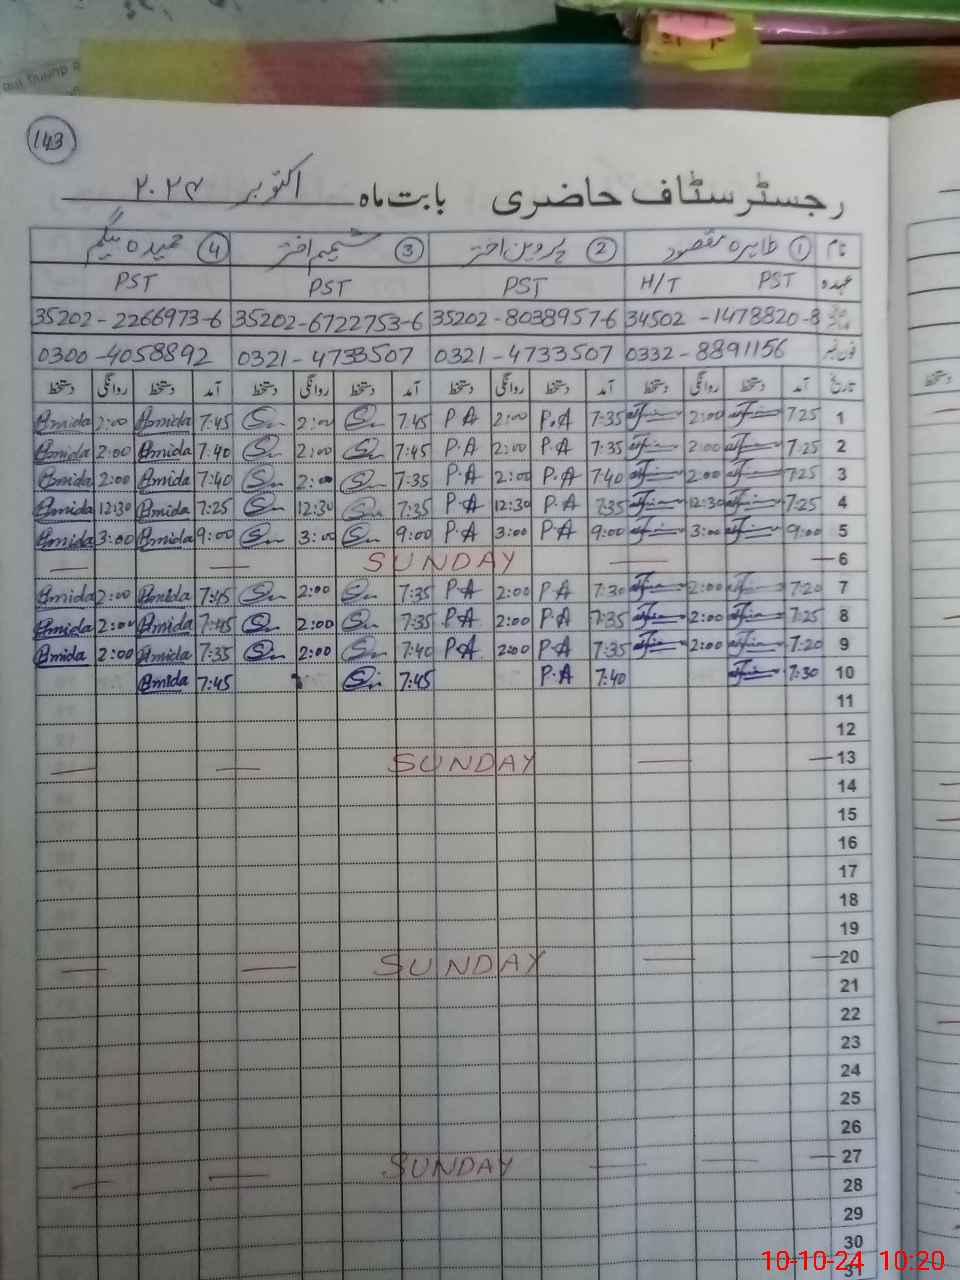 143
رجسٹر سٹاف حاضری بابت ماہ اکتوبر ۲۰۲۴
نام ① طاہرہ مقصود ② پروین اختر ③ شمیم اختر ④ حمیدہ بیگم
عہدہ PST H/T PST PST PST
34502-1478820-8 35202-8038957-6 35202-6722753-6 35202-2266973-6
فون نمبر 0332-8891156 0321-4733507 0321-4733507 0300-4058892
تاریخ آمد دستخط روانگی دستخط آمد دستخط روانگی دستخط آمد دستخط روانگی دستخط آمد دستخط روانگی دستخط
1 7:25 2:00 7:35 P.A 2:00 P.A 7:45 2:00 7:45 Hmida 2:00 Hmida
2 7:25 2:00 7:35 P.A 2:00 P.A 7:45 2:00 7:40 Hmida 2:00 Hmida
3 7:25 2:00 7:40 P.A 2:00 P.A 7:35 2:00 7:40 Hmida 2:00 Hmida
4 7:25 12:30 7:35 P.A 12:30 P.A 7:35 12:30 7:25 Hmida 12:30 Hmida
5 9:00 3:00 9:00 P.A 3:00 P.A 9:00 3:00 9:00 Hmida 3:00 Hmida
6 SUNDAY
7 7:20 2:00 7:30 P.A 2:00 P.A 7:35 2:00 7:45 Hmida 2:00 Hmida
8 7:25 2:00 7:35 P.A 2:00 P.A 7:35 2:00 7:45 Hmida 2:00 Hmida
9 7:20 2:00 7:35 P.A 2:00 P.A 7:40 2:00 7:35 Hmida 2:00 Hmida
10 7:30 7:40 P.A 7:45 7:45 Hmida
11
12
13 SUNDAY
14
15
16
17
18
19
20 SUNDAY
21
22
23
24
25
26
27 SUNDAY
28
29
30
31
10-10-24 10:20